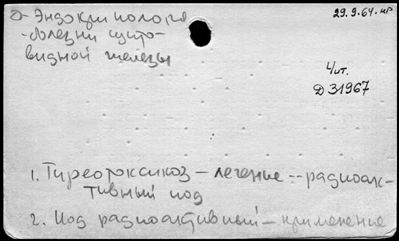 а- Эндокринология
29.9.64. нр
-болезни щито-
видной железы
Чит.
Д 31967
1. Тиреотоксикоз — лечение -- радиоак-
тивный иод
2. Иод радиоактивный — применение